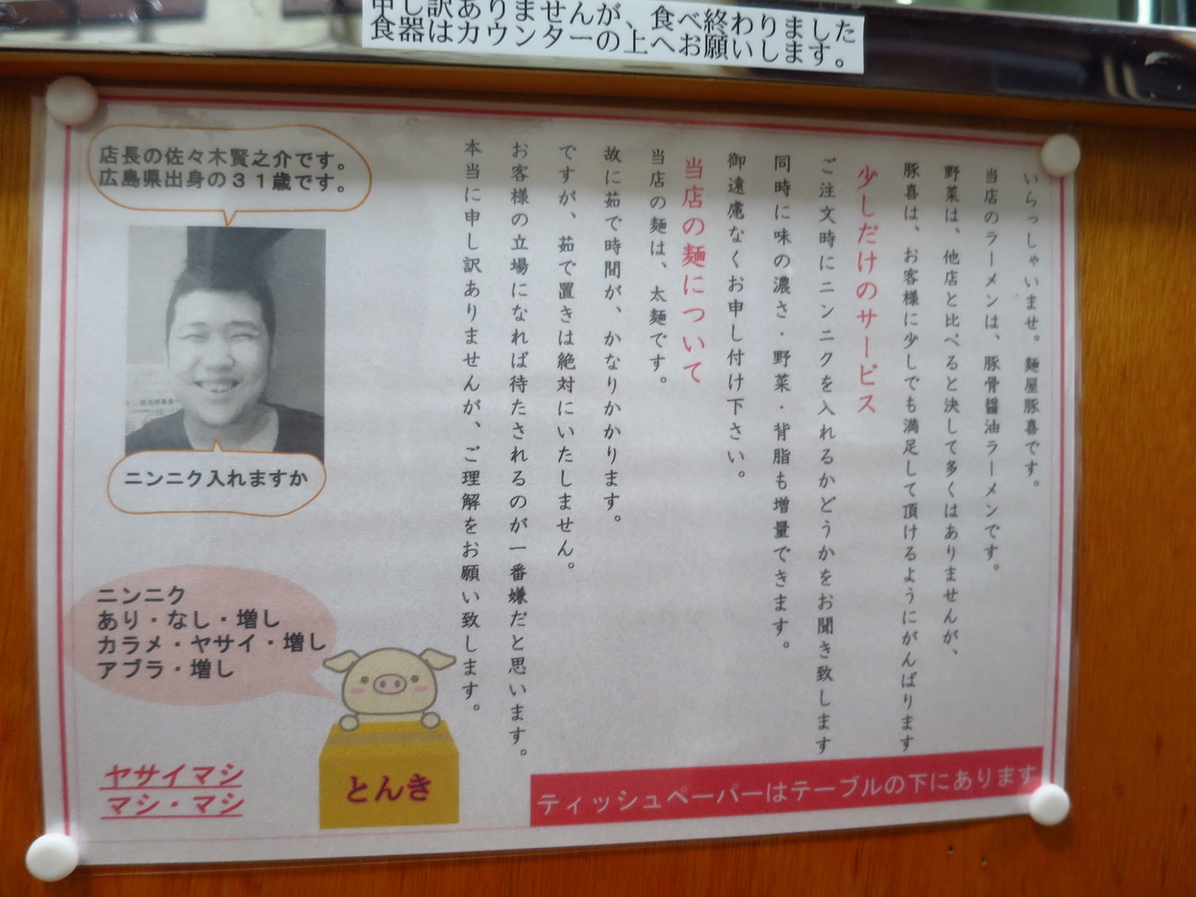 申し訳ありませんが、食べ終わりました
食器はカウンターの上へお願いします。
いらっしゃいませ。麺屋豚喜です。
当店のラーメンは、豚骨醤油ラーメンです。
野菜は、他店と比べると決して多くはありませんが、
豚喜は、お客様に少しでも満足して頂けるようにがんばります
少しだけのサービス
ご注文時にニンニクを入れるかどうかをお聞き致します
同時に味の濃さ・野菜・背脂も増量できます。
御遠慮なくお申し付け下さい。
当店の麺について
当店の麺は、太麺です。
故に茹で時間が、かなりかかります。
ですが、茹で置きは絶対にいたしません。
お客様の立場になれば待たされるのが一番嫌だと思います。
本当に申し訳ありませんが、ご理解をお願い致します。
店長の佐々木賢之介です。
広島県出身の31歳です。
ニンニク入れますか
ニンニク
あり・なし・増し
カラメ・ヤサイ・増し
アブラ・増し
ヤサイマシ
マシ・マシ
とんき
ティッシュペーパーはテーブルの下にあります